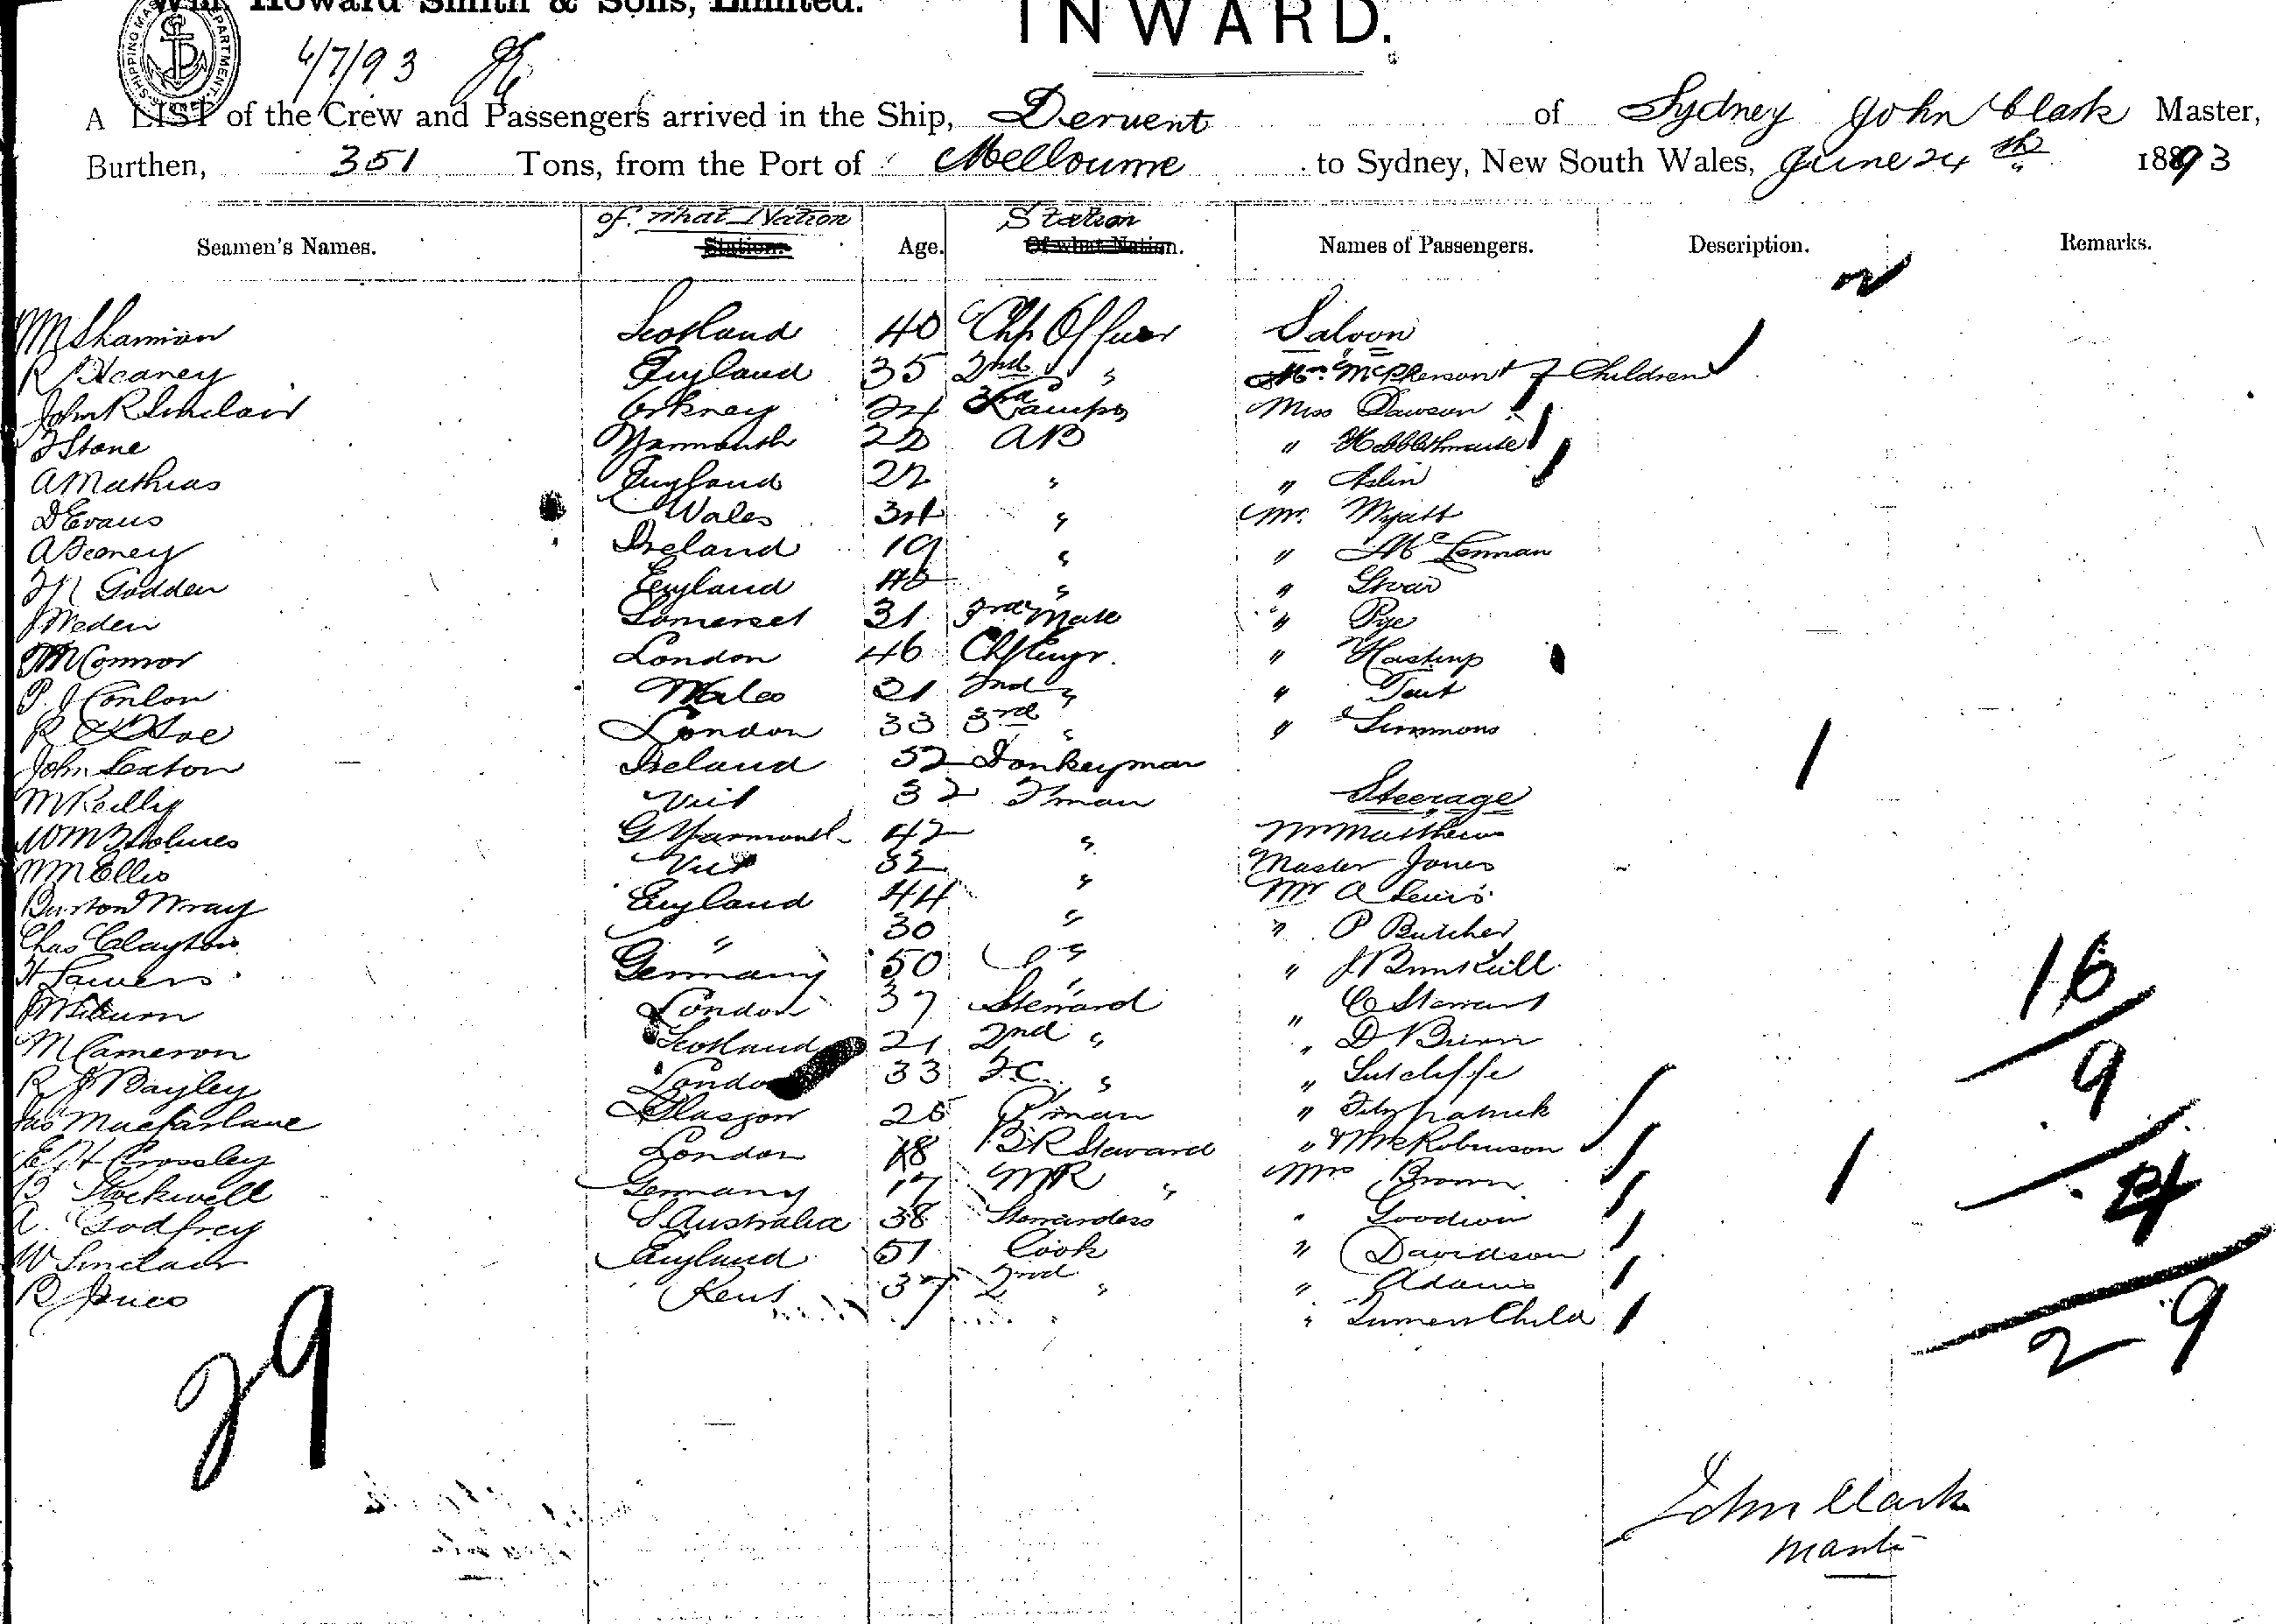 Wm. Howard Smith & Sons, Limited.
INWARD.
6/7/93
A LIST of the Crew and Passengers arrived in the Ship, Derwent of Sydney John Clark Master,
Burthen, 351 Tons, from the Port of Melbourne to Sydney, New South Wales, June 24th 1893
Seamen's Names. of what Nation Station. Age. Station Of what Nation. Names of Passengers. Description. Remarks.
Scotland 40 Officer Saloon
R Heaney England 35 2nd " McPherson Children
John R Sinclair Orkney 24 Lamps Miss Dawson
F Stone Yarmouth 22 AB "
A Mathias England 22 " " Aslin
D Evans Wales " Mr. Wyatt
A Feeney Ireland 19 " " McLennan
Godden England " "
J Weden Somerset 31 3rd Mate " Pye
Connor London 46 Chf Engr. " Hastings
P. J Conlon Wales 21 2nd " " Tait
London 33 3rd " " Simmons
John Sexton Ireland 52 Donkeyman
M Reilly Vict 32 F'man Steerage
Wm Holmes G Yarmouth 42 " Mr Matthews
Wm Ellis Vict 32 " Master Jones
Burton Wray England 44 " Mr A Lewis
Chas Clayton " 30 " " P Butcher
Germany 50 " " J Brunskill
London 37 Steward " C Stewart
M Cameron Scotland 21 2nd " " D
R J Bayley London 33 F.C. " " Sutcliffe
Jas Macfarlane Glasgow 26 P'man " Fitzpatrick
E H Crossley London 18 B R Steward " Robinson
B Stockwell Germany 17 M R " Mrs Brown
A. Godfrey S. Australia 38 Stewardess " Goodwin
W Sinclair England 51 Cook " Davidson
R Jones Kent 37 2nd " " Adams
" Child
29
16
9
4
29
John Clark